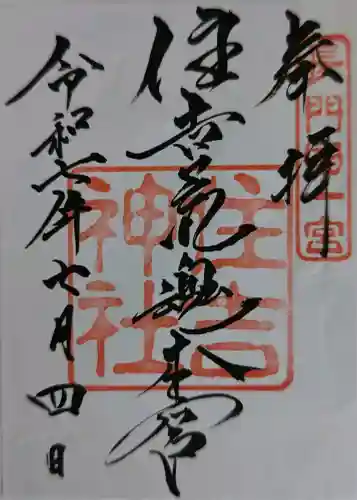 奉拝
長門國一宮
住吉荒魂本宮
住吉神社
令和七年七月四日